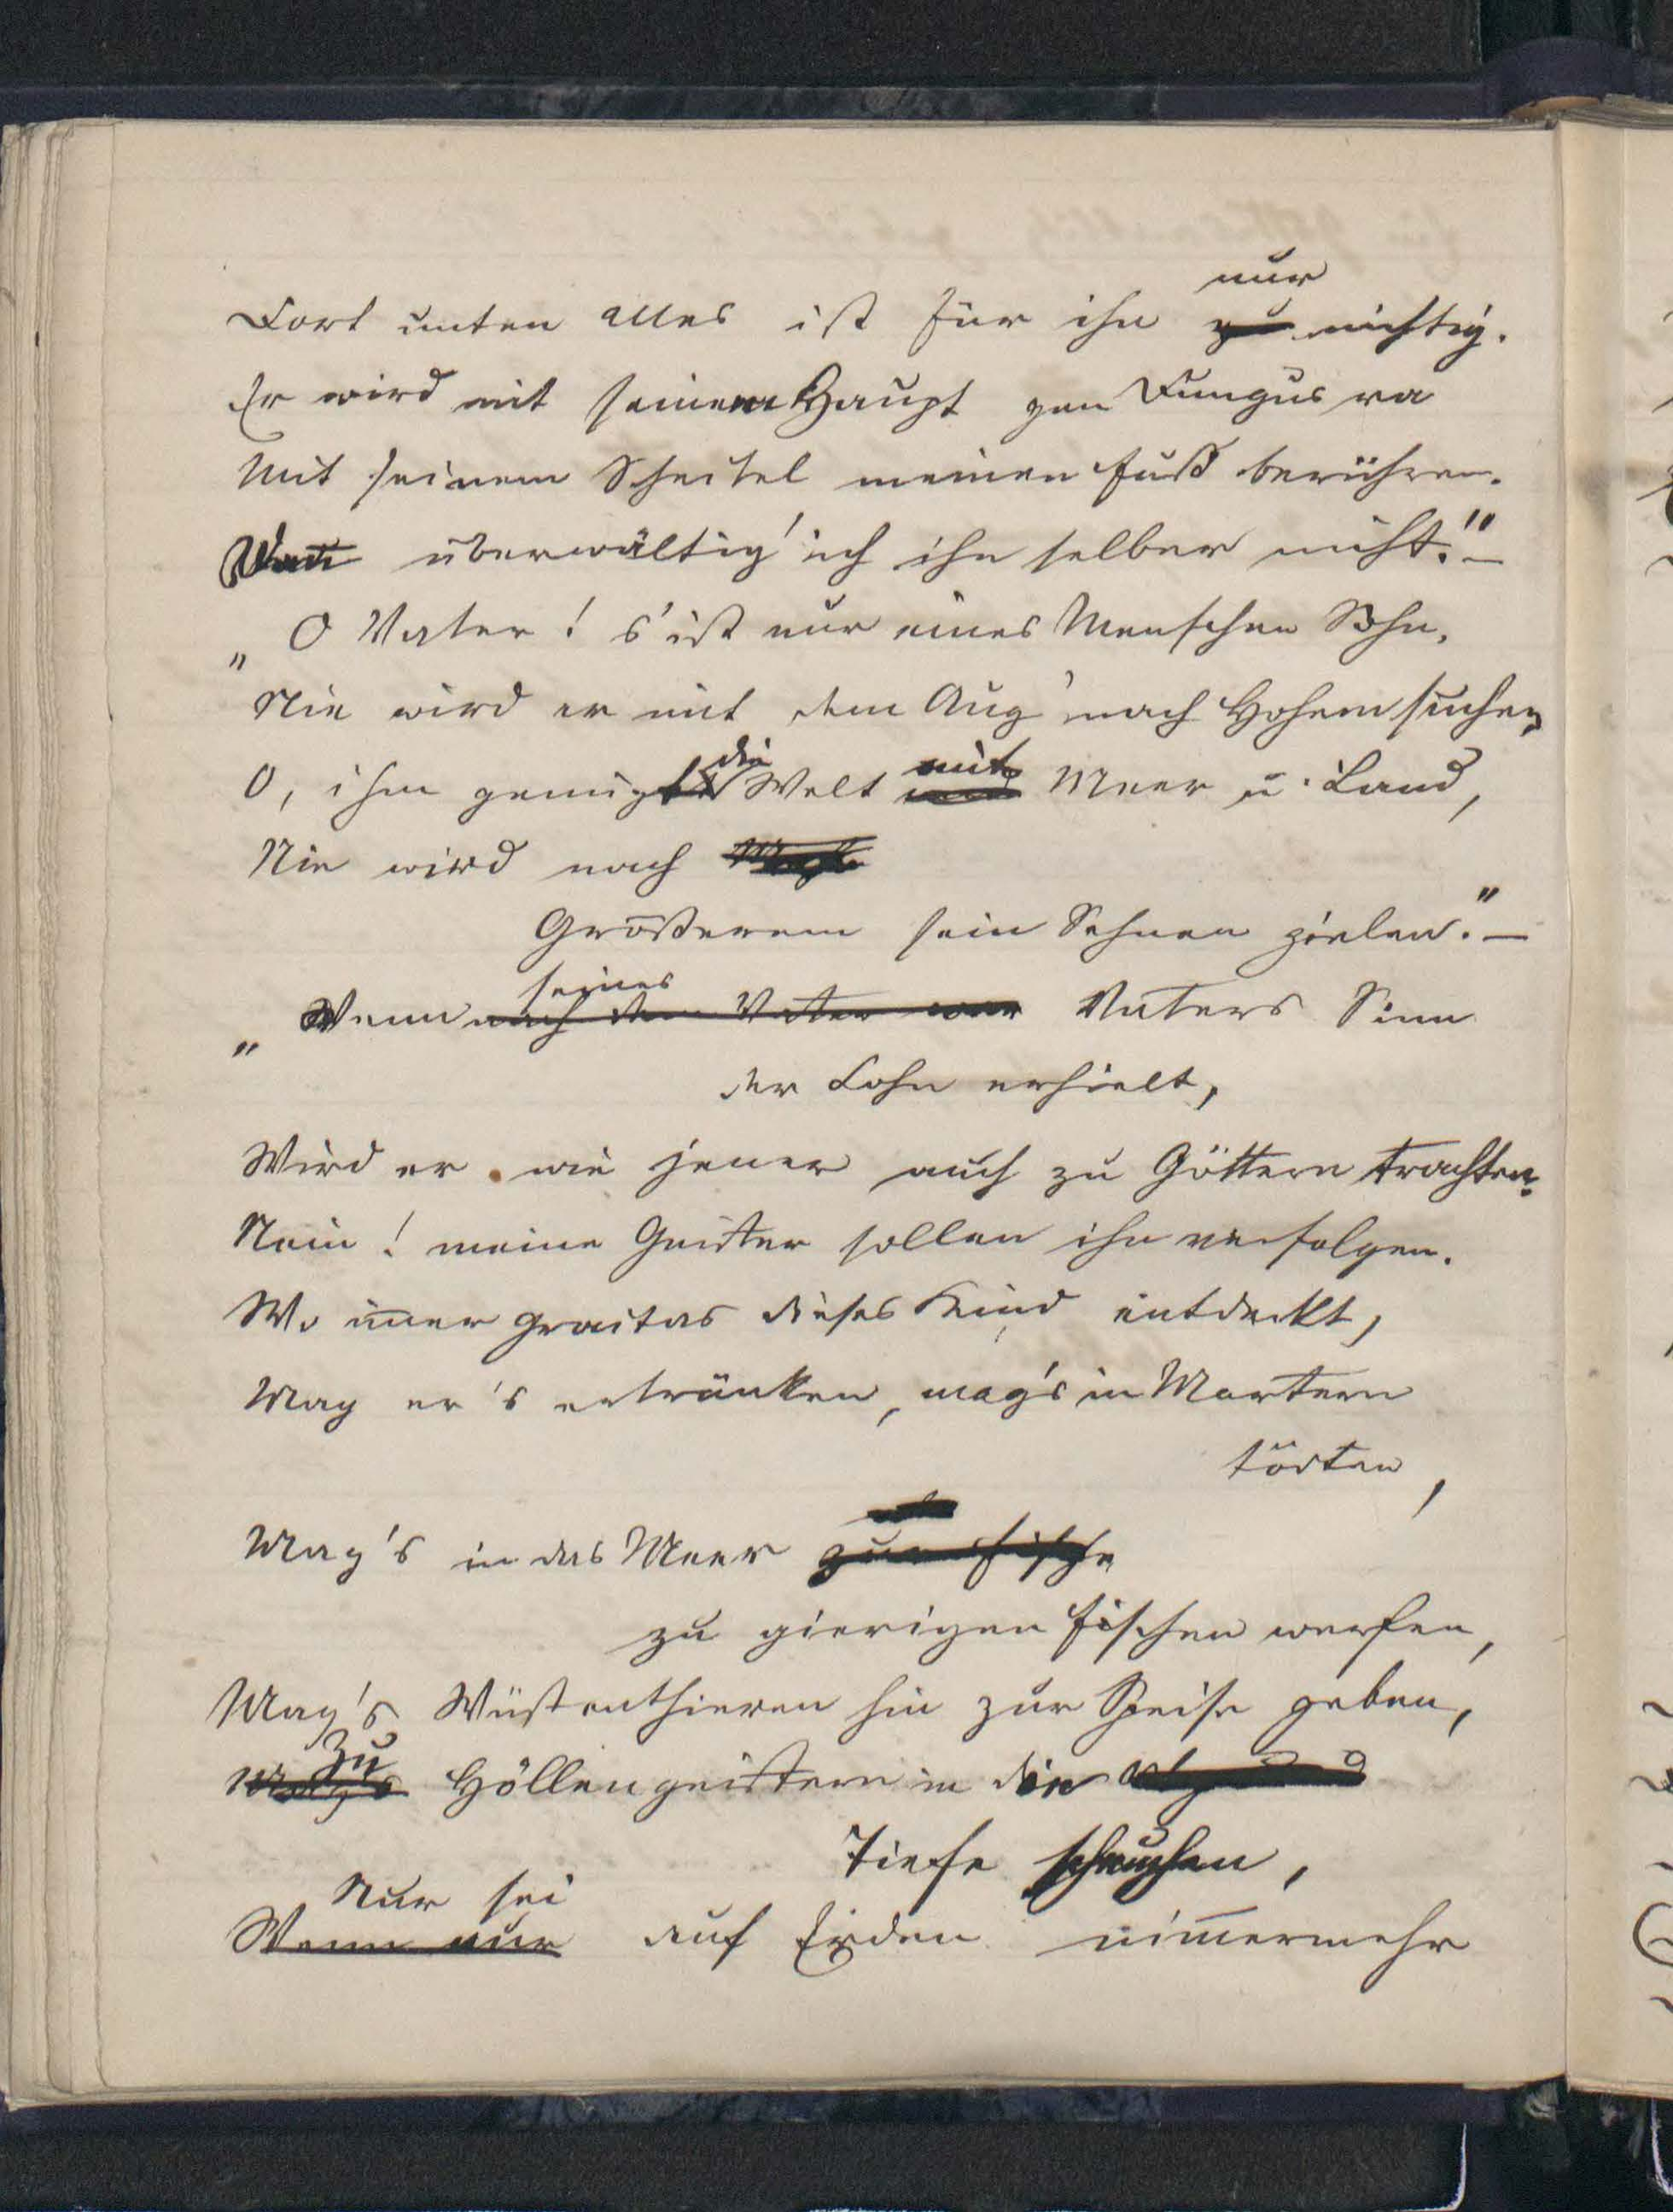 nur
Dort unten alles ist für ihn zu nichtig.
Er wird mit seinem Haupt gen Fungus
Mit seinem Scheitel meinen Fuß berühren.
Wenn überwältig' ich ihn selber nicht."–
„O Vater! s'ist nur eines Menschen Sohn,
Nie wird er mit dem Aug' nach Hohem suchen,
die mit
O, ihm genügt Welt und Meer u. Land,
Nie wird nach
Größerem sein Sehnen zielen."–
seines
„Wenn nach dem Vater war Vaters Sinn
der Sohn erhielt,
Wird er wie jener auch zu Göttern trachten.
Nein! meine Geister sollen ihn verfolgen.
Wo im̅er Graitas dieses Kind entdeckt,
Mag er's ertränken, mag's in Martern
tödten,
Mag's in das Meer zur Fische
zu gierigen Fischen werfen,
Mag's Wüstenthieren hin zur Speise geben,
Zu
Mag's Höllengeistern in die Abgrund
Tiefe scheuchen,
Nur sei
Wenn nur auf Erden nim̅ermehr